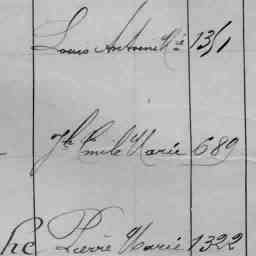 Louis Antoine Ra 13/1
Jh Emile Marie 689
he Pierre Marie 1322